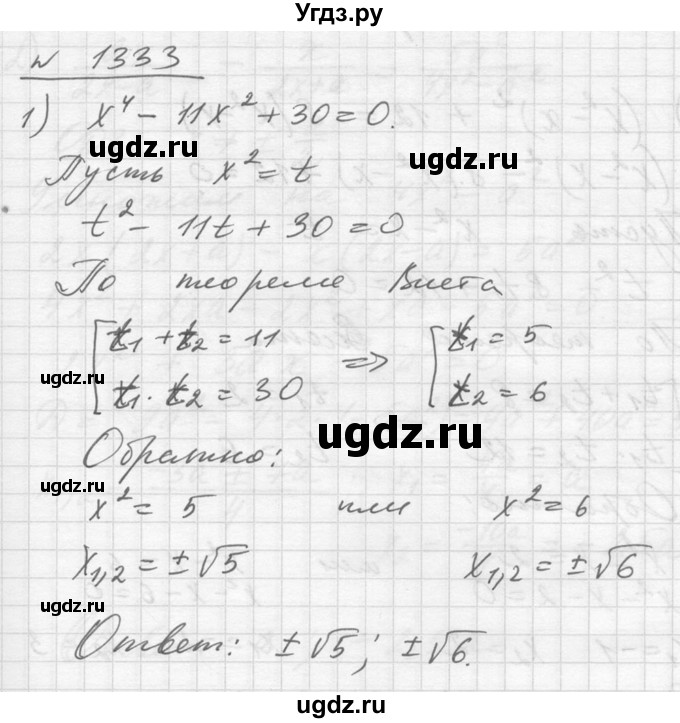 Угдз.ру
№ 1333
1) x⁴ - 11x² + 30 = 0.
ugdz.ru
Пусть x² = t
t² - 11t + 30 = 0
По теореме Виета
t₁ + t₂ = 11
t₁ · t₂ = 30 => t₁ = 5
t₂ = 6
ugdz.ru
ugdz.ru
Обратно:
ugdz.ru
x² = 5 или x² = 6
x₁,₂ = ±√5 x₁,₂ = ±√6
ugdz.ru
Ответ: ±√5; ±√6.
ugdz.ru